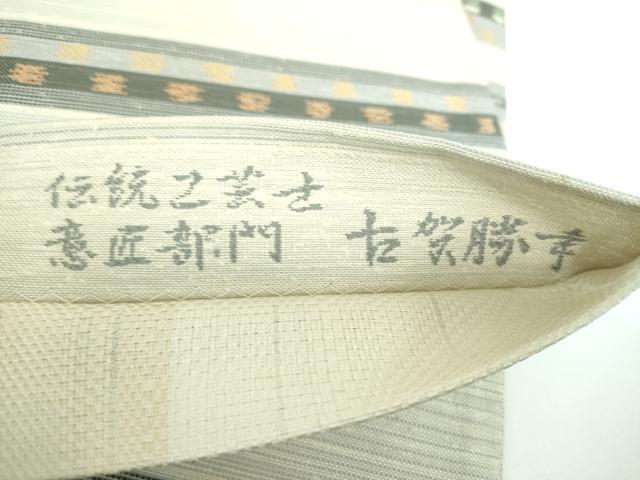 伝統工芸士
意匠部門 古賀勝幸